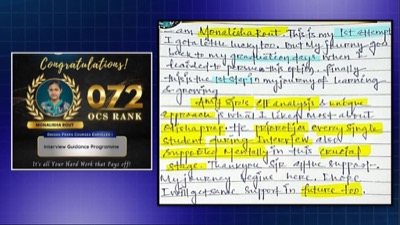 Congratulations!
072
OCS RANK
MONALISHA ROUT
Interview Guidance Programme
It's all your Hard Work that Pays off!
am Monalisha Rout. This is my 1st attempt
I got a little lucky too. But my journey goes
back to my graduation days when I
decided to this option. Finally
this is the 1st step in my journey of learning
& growing
Any Sir's all analysis & unique
approach is what I liked most about
priorities every single
student during Interview also
supported Mentally in this crucial
stage. Thankyou Sir all the support.
My journey begins here. I hope
I will get same support in future too.